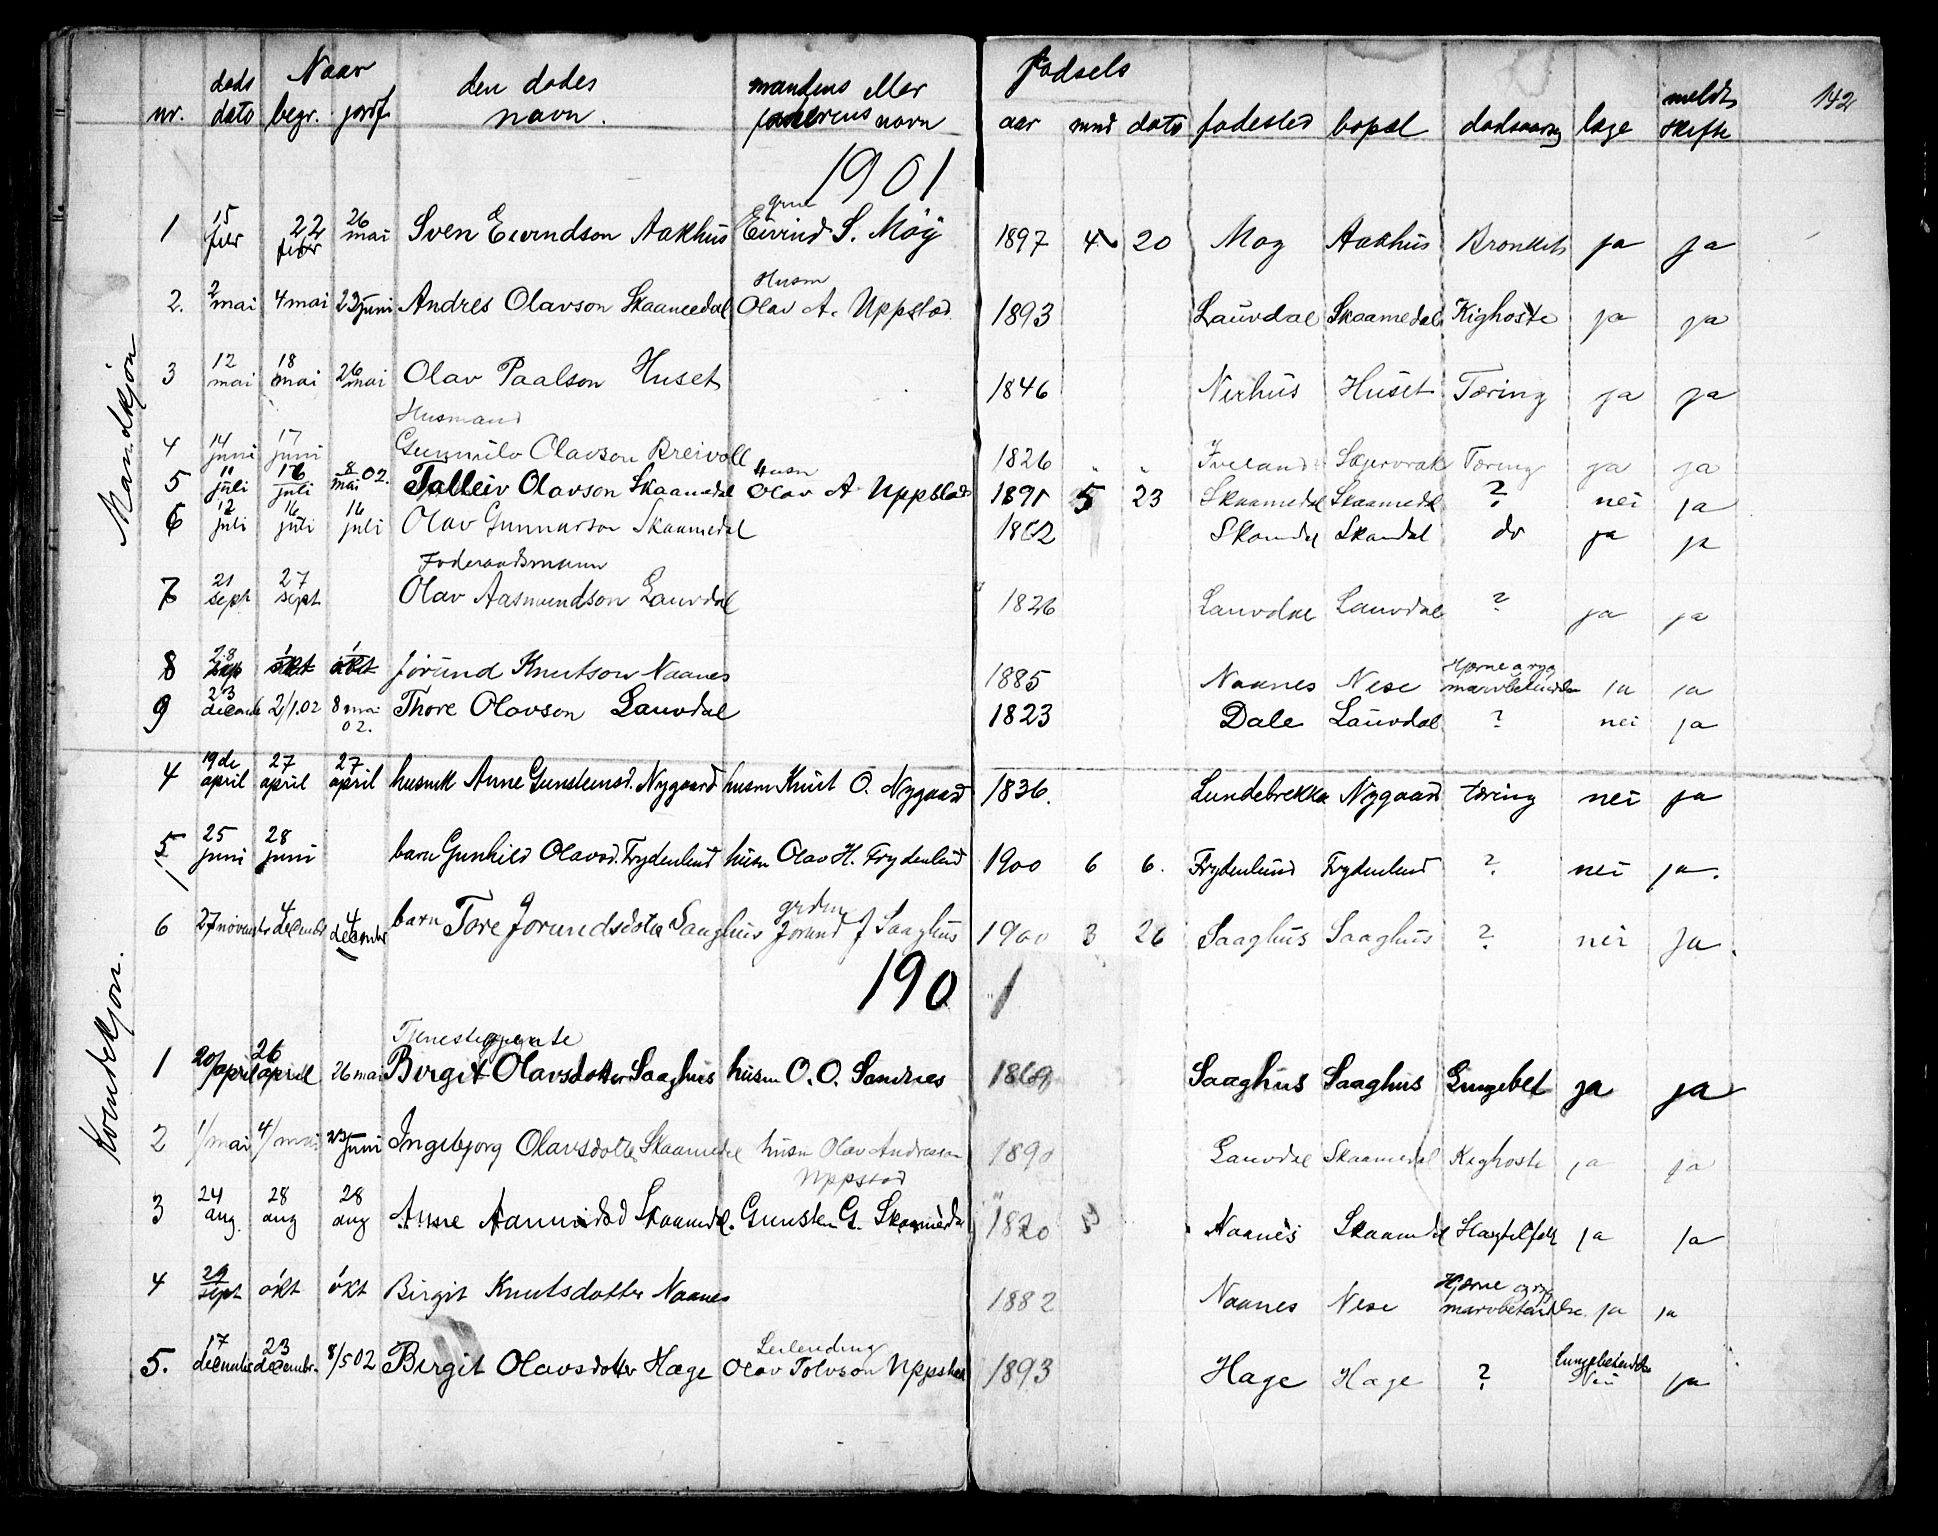 142
nr. døds dato Naar begr. jordf. den dødes navn. mandens eller faderens navn fødsels aar mnd dato fødested bopæl dødsaarsag læge meldt skifte
1901
Mandkjøn
1 15 febr 22 febr 26 mai Sven Eivindson Aakhus grm Eivind S. Moÿ 1897 4 20 Moy Aakhus Bronkit ja ja
2. 2 mai 4 mai 23 juni Andres Olavson Skaamedal Husm Olav A. Uppstad 1893 Lauvdal Skaamedal Kighoste ja ja
3 12 mai 18 mai 26 mai Olav Paalson Huset 1846 Nerhus Huset Tæring ja ja
Husmand
4 14 juni 17 juni Olavson Breivoll 1826 " " Iveland Tæring ja ja
5 11 juli 16 juli 8 mai 02. Talleiv Olavson Skaamedal Husm Olav A. Uppstad 1891 5 23 Skaamedal Skaamedal ? nei ja
6 12 juli 16 juli 16 juli Olav Gunnarson Skaamedal 1862 Skomdal Skomdal do ja ja
Føderaadsmann
7 21 sept 27 sept Olav Aasmundson Lauvdal 1826 Lauvdal Lauvdal ? ja ja
8 28 sep 1 okt 1 okt Jørund Knutson Naanes 1885 Naanes Nese Hjerne og ryg marvbetendelse ja ja
9 23 decemb 2/1.02 8 mai 02. Thore Olavson Lauvdal 1823 Dale Lauvdal ? nei ja
4 19de april 27 april 27 april husmk Anne Gunsteinsd. Nygaard husm Knut O. Nygaard 1836. Lundebrekka Nygaard tæring nei ja
5 25 juni 28 juni barn Gunhild Olavsd. Frydenlund husm Olav H. Frydenlund 1900 6 6. Frydenlund Frydenlund ? nei ja.
6 27 novembr 4 decembr 4 december barn Tore Jorundsdoter Saaghus grdm Jorund J Saaghus 1900 3 26 Saaghus Saaghus ? nei Ja.
1901
Kvindekjøn.
Tjenestegjente
1 20/april 26 april 26 mai Birgit Olavsdotter Saaghus husm O. O. Sandnes 1869 Saaghus Saaghus Lungebet ja ja
2 1/mai 4/mai 23 juni Ingebjorg Olavsdotter Skaamedal husm Olav Andresen Uppstad 1890 Lauvdal Skaamedal Kighoste ja ja
3 24 aug. 28 aug 28 aug Anne Aamundsd Skaamdal. Gunsten G. Skaamedal 1820 Naanes Skaamdal ja ja
4 29 sept 1 okt 1 okt Birgit Knutsdotter Naanes 1882 Naanes Nese Hjerne og ryg marvbetændelse. ja ja
5. 17 december 23 decembr. 8/5 02 Birgit Olavsdotter Hage Leilending Olav Tolvson Uppstad 1893 Hage Hage ? Lungebetændelse Nei ja